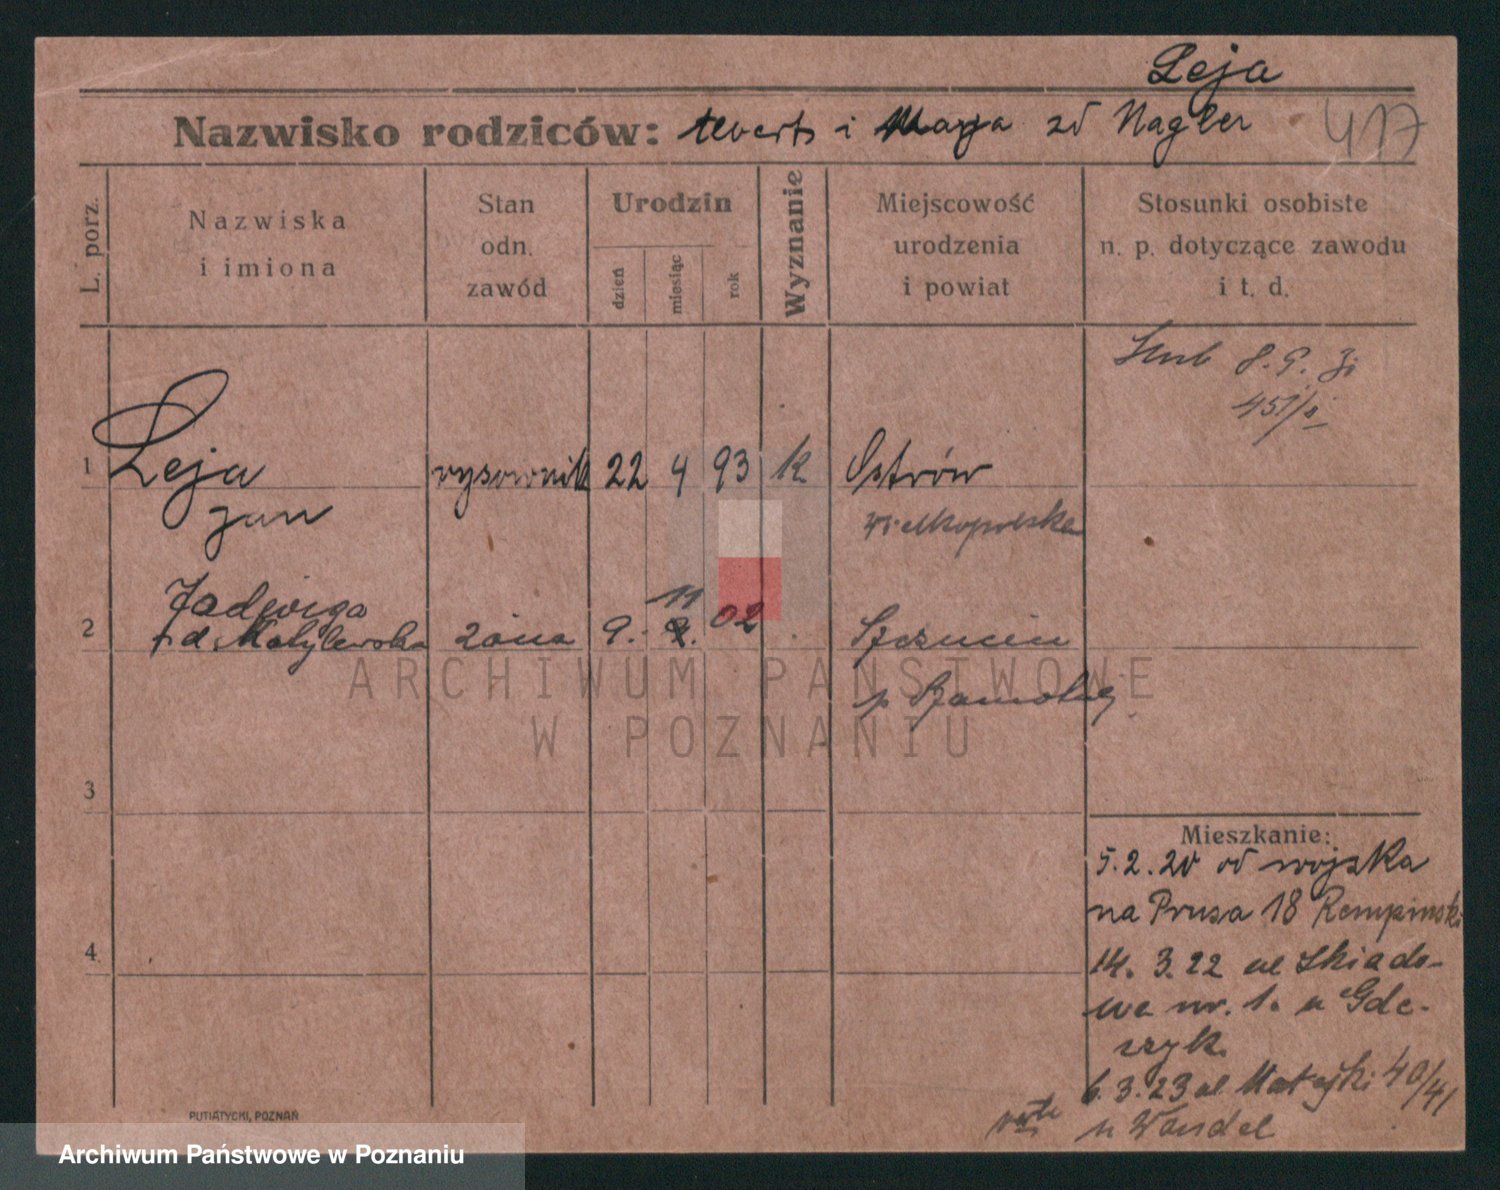 Leja
Nazwisko rodziców: i Marja zd Nagler 417
L. porz.
Nazwiska
i imiona
Stan
odn.
zawód
Urodzin
dzień
miesiąc
rok
Wyznanie
Miejscowość
urodzenia
i powiat
Stosunki osobiste
n. p. dotyczące zawodu
i t. d.
1 Leja rysownik 22 4 93 k Ostrów
Jan Wielkopolska
Jadwiga 11
2 żona 9. 02
p
3
4
Mieszkanie:
5.2.20 od wojska
na Prusa 18 Rempinski
14. 3. 22 ul Składo-
wa nr. 1. u Gde-
czyk.
6.3.23 ul Matejki 40/41
verte u Wandel
PUTIATYCKI, POZNAŃ
ARCHIWUM PAŃSTWOWE
W POZNANIU
Archiwum Państwowe w Poznaniu